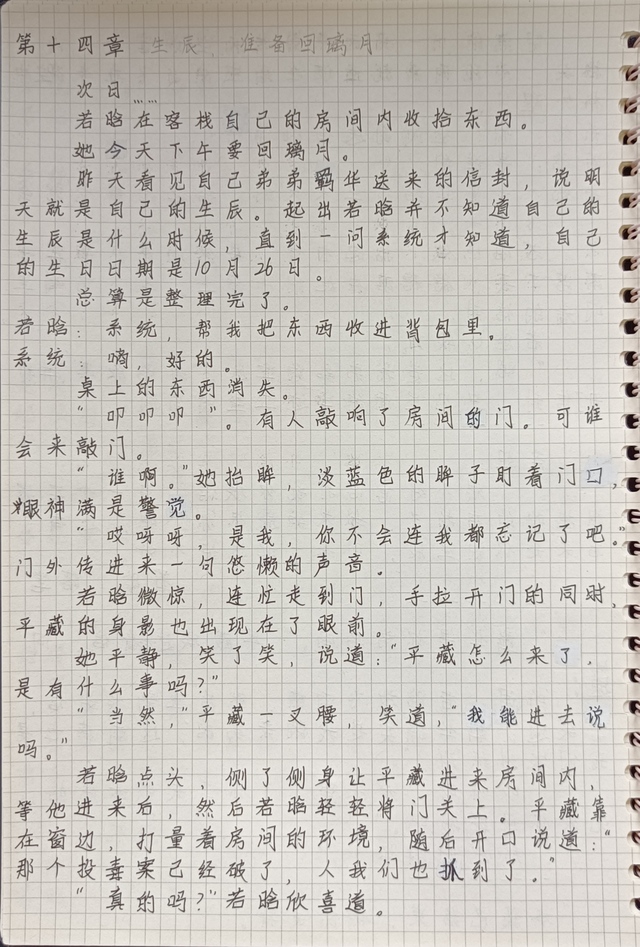 第十四章 生辰，准备回璃月
次日……
若晗在客栈自己的房间内收拾东西。
她今天下午要回璃月。
昨天看见自己弟弟羁华送来的信封，说明
天就是自己的生辰。起出若晗并不知道自己的
生辰是什么时候，直到一问系统才知道，自己
的生日日期是10月26日。
总算是整理完了。
若晗：系统，帮我把东西收进背包里。
系统：嘀，好的。
桌上的东西消失。
“叩叩叩”。有人敲响了房间的门。可谁
会来敲门。
“谁啊。”她抬眸，淡蓝色的眸子盯着门口，
眼神满是警觉。
“哎呀呀，是我，你不会连我都忘记了吧。”
门外传进来一句悠懒的声音。
若晗微惊，连忙走到门，手拉开门的同时，
平藏的身影也出现在了眼前。
她平静，笑了笑，说道：“平藏怎么来了，
是有什么事吗？”
“当然，”平藏一叉腰，笑道，“我能进去说
吗。”
若晗点头，侧了侧身让平藏进来房间内，
等他进来后，然后若晗轻轻将门关上。平藏靠
在窗边，打量着房间的环境，随后开口说道：“
那个投毒案已经破了，人我们也抓到了。”
“真的吗？”若晗欣喜道。